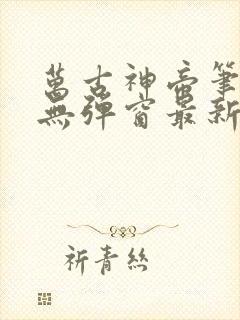 萬古神帝筆
無彈窗最新
祈青絲